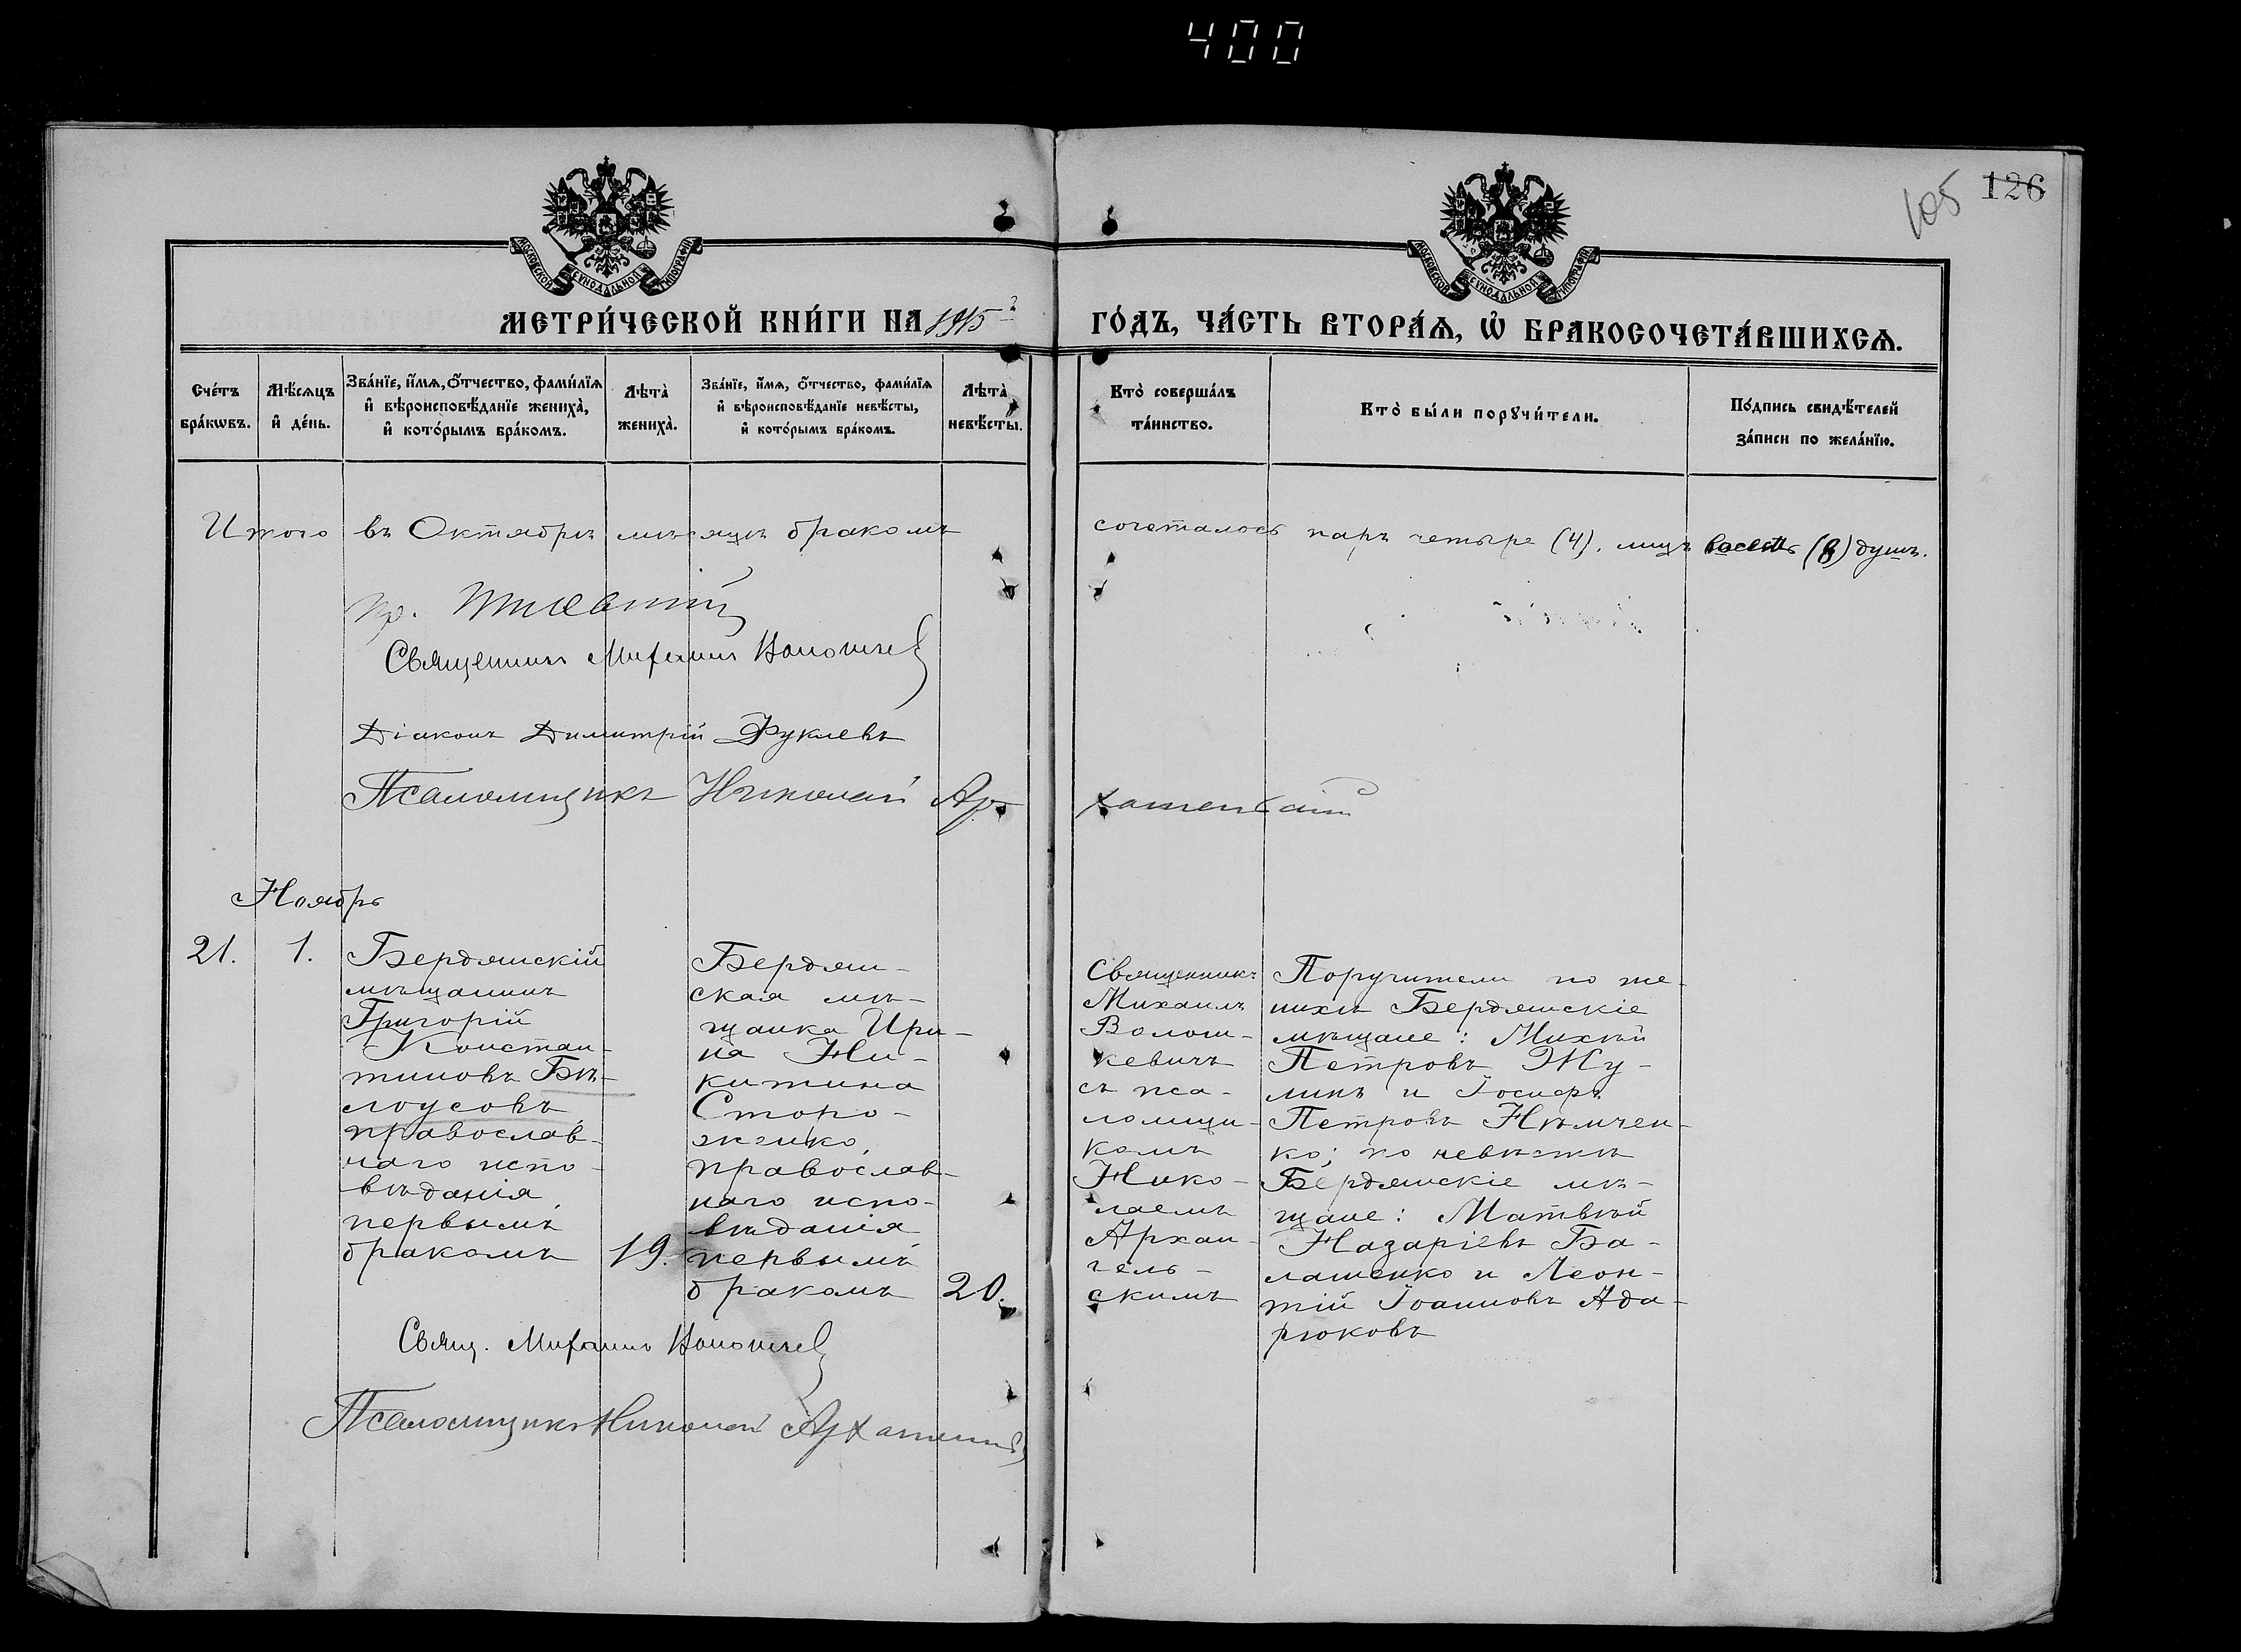 400
105 126
МОСКОВСКОЙ СѴНОДАЛЬНОЙ ТИПОГРАФІИ
МОСКОВСКОЙ СѴНОДАЛЬНОЙ ТИПОГРАФІИ
МЕТРИ́ЧЕСКОЙ КНИ́ГИ НА 1915 г
ГО́ДЪ, ЧА́СТЬ ВТОРА́Ѧ, Ѽ БРАКОСОЧЕТА́ВШИХСѦ.
Сче́тъ бра́кѡвъ.
Мѣ́сѧцъ и҆ де́нь.
Зва́нїе, и҆́мѧ, ѻ҆́тчество, фами́лїѧ
и҆ вѣроисповѣ́данїе жениха̀,
и҆ кото́рымъ бра́комъ.
Лѣта̀ жениха̀.
Зва́нїе, и҆́мѧ, ѻ҆́тчество, фами́лїѧ
и҆ вѣроисповѣ́данїе невѣ́сты,
и҆ кото́рымъ бра́комъ.
Лѣта̀ невѣ́сты.
Кто̀ соверша́лъ
та́инство.
Кто̀ бы́ли порꙋчи́тели.
По́дпись свидѣ́телей
за́писи по жела́нїю.
Итого въ Октябрѣ мѣсяцѣ бракомъ сочеталось паръ четыре (4), лицъ восемь (8) душъ.
Священникъ Михаилъ
Діаконъ Димитрій Фуклевъ
Псаломщикъ Николай Архангельскій
Ноябрь
21. 1.
Бердянскій
мѣщанинъ
Григорій
Констан-
тиновъ Бѣ-
лоусовъ,
православ-
наго испо-
вѣданія,
первымъ
бракомъ
19.
Бердян-
ская мѣ-
щанка Ири-
на Ни-
китина
Сторо-
женко,
православ-
наго испо-
вѣданія
первымъ
бракомъ
20.
Священникъ
Михаилъ
Волош-
кевичъ
съ пса-
ломщи-
комъ
Нико-
лаемъ
Архан-
гель-
скимъ
Поручители по же-
нихѣ Бердянскіе
мѣщане: Михѣй
Петровъ Жу-
линъ и Іосифъ
Петровъ Нѣмчен-
ко; по невѣстѣ
Бердянскіе мѣ-
щане: Матвѣй
Назаріевъ Ба-
лашенко и Леон-
тій Іоанновъ Ада-
рюковъ
Свящ. Михаилъ
Псаломщикъ Николай Архангельскій